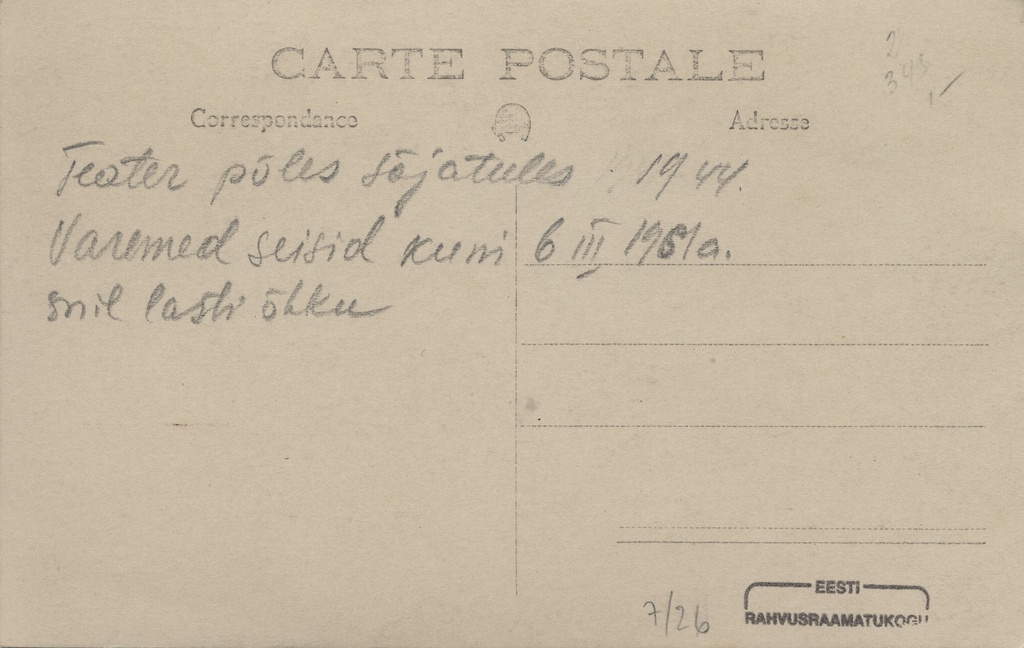 CARTE POSTALE
Correspondance
Adresse
Teater põles sõjatules 1944.
Varemed seisid kuni 6 III 1961a.
siil lasti õhku
7/26
EESTI
RAHVUSRAAMATUKOGU